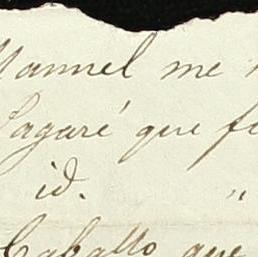 Manuel me
Pagaré que
id. "
Caballo que